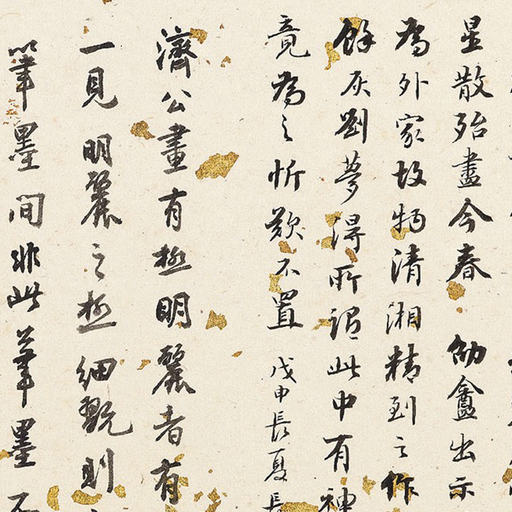 星散殆盡今春 劬盦出示
為外家故物清湘精到之作
餘灰劉夢得所謂此中有神
竟為之忻歎不置 戊申長夏長
濟公畫有極明麗者有
一見明麗之極細翫則
筆墨間非此筆墨不